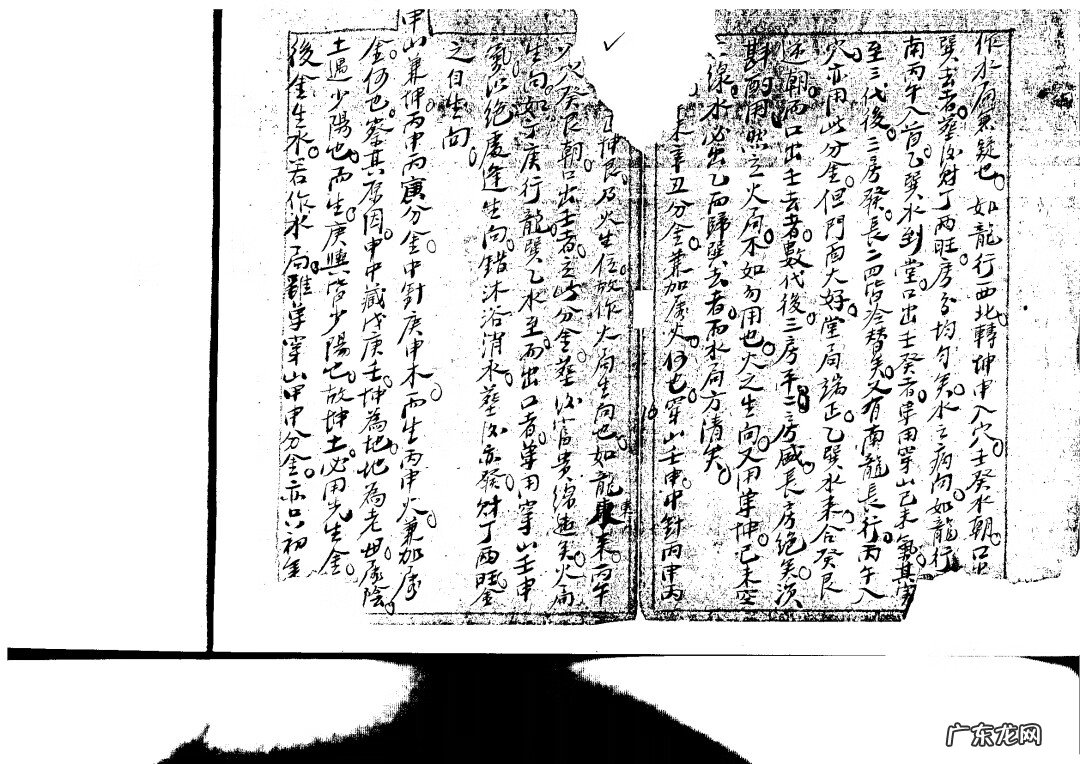 作水局兼疑也。如龍行西北轉坤申入穴。壬癸水朝口出
巽去者。葬後財丁兩旺。房分均勻矣。水之病向。如龍行
南丙午入首。乙巽水到堂。口出壬癸者。单用穿山己未氣其
至三代後。三房發。長二四皆冷替矣。又有南龍長行丙午入
穴。亦用此分金。但門面大好。堂局端正。乙巽水來合癸艮
逆朝。而口出壬去者。數代後三房平。二房盛。長房絕矣。須
斟酌用然立火局不如勿用也。火之生向。又用单坤己未空
線。水必出乙而歸巽去者。而水局方清矣。
辛丑分金。兼加屬火何也。穿山壬申。中針丙申丙
坤艮。乃火生位。故作火局生向也。如龍東來。丙午
入穴。癸艮朝。口出壬者。立此分金。葬後富貴綿遠矣。火局
生向。如丁庚行龍。巽乙水至。而出口者。单用穿山壬申
氣。從絕處逢生向。錯沐浴消水。葬後亦發財丁兩盛
之自生向
申山兼坤丙申丙寅分金。中針庚申木。而生丙申火。兼加屬
金何也。蓋其原因申中藏戊庚壬。坤為地。地為老母。屬陰。
土過少陽也。而生庚與皆少陽也。故坤土必用先生金。
後金生水。若作水局。雖单穿山甲申分金。亦只初年
10
广东龙网